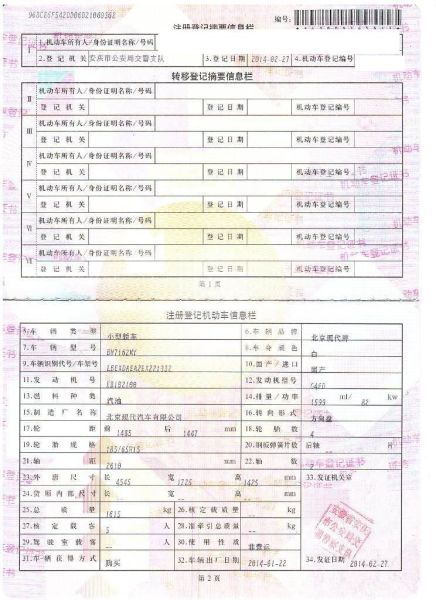 注册登记摘要信息栏
编号:
Ⅰ 1.机动车所有人/身份证明名称/号码
2.登记机关 安庆市公安局交警支队 3.登记日期 2014-02-27 4.机动车登记编号
转移登记摘要信息栏
Ⅱ 机动车所有人/身份证明名称/号码
登记机关 登记日期 机动车登记编号
Ⅲ 机动车所有人/身份证明名称/号码
登记机关 登记日期 机动车登记编号
Ⅳ 机动车所有人/身份证明名称/号码
登记机关 登记日期 机动车登记编号
Ⅴ 机动车所有人/身份证明名称/号码
登记机关 登记日期 机动车登记编号
Ⅵ 机动车所有人/身份证明名称/号码
登记机关 登记日期 机动车登记编号
Ⅶ 机动车所有人/身份证明名称/号码
登记机关 登记日期 机动车登记编号
第1页
注册登记机动车信息栏
5.车辆类型 小型轿车 6.车辆品牌 北京现代牌
7.车辆型号 8.车身颜色 白
9.车辆识别代号/车架号 10.国产/进口 国产
11.发动机号 12.发动机型号 G4FD
13.燃料种类 汽油 14.排量/功率 1599 ml/ 82 kw
15.制造厂名称 北京现代汽车有限公司 16.转向形式 方向盘
17.轮距 前 1485 后 1487 mm 18.轮胎数 4
19.轮胎规格 185/65R15 20.钢板弹簧片数 后轴 片
21.轴距 2610 mm 22.轴数 2
23.外廓尺寸 长 4545 宽 1725 高 1425 mm 33.发证机关章
24.货厢内部尺寸 长 宽 高 mm
25.总质量 1615 kg 26.核定载质量 kg
27.核定载客 5 人 28.准牵引总质量 kg
29.驾驶室载客 人 30.使用性质 非营运
31.车辆获得方式 购买 32.车辆出厂日期 2014-01-22 34.发证日期 2014-02-27
第2页